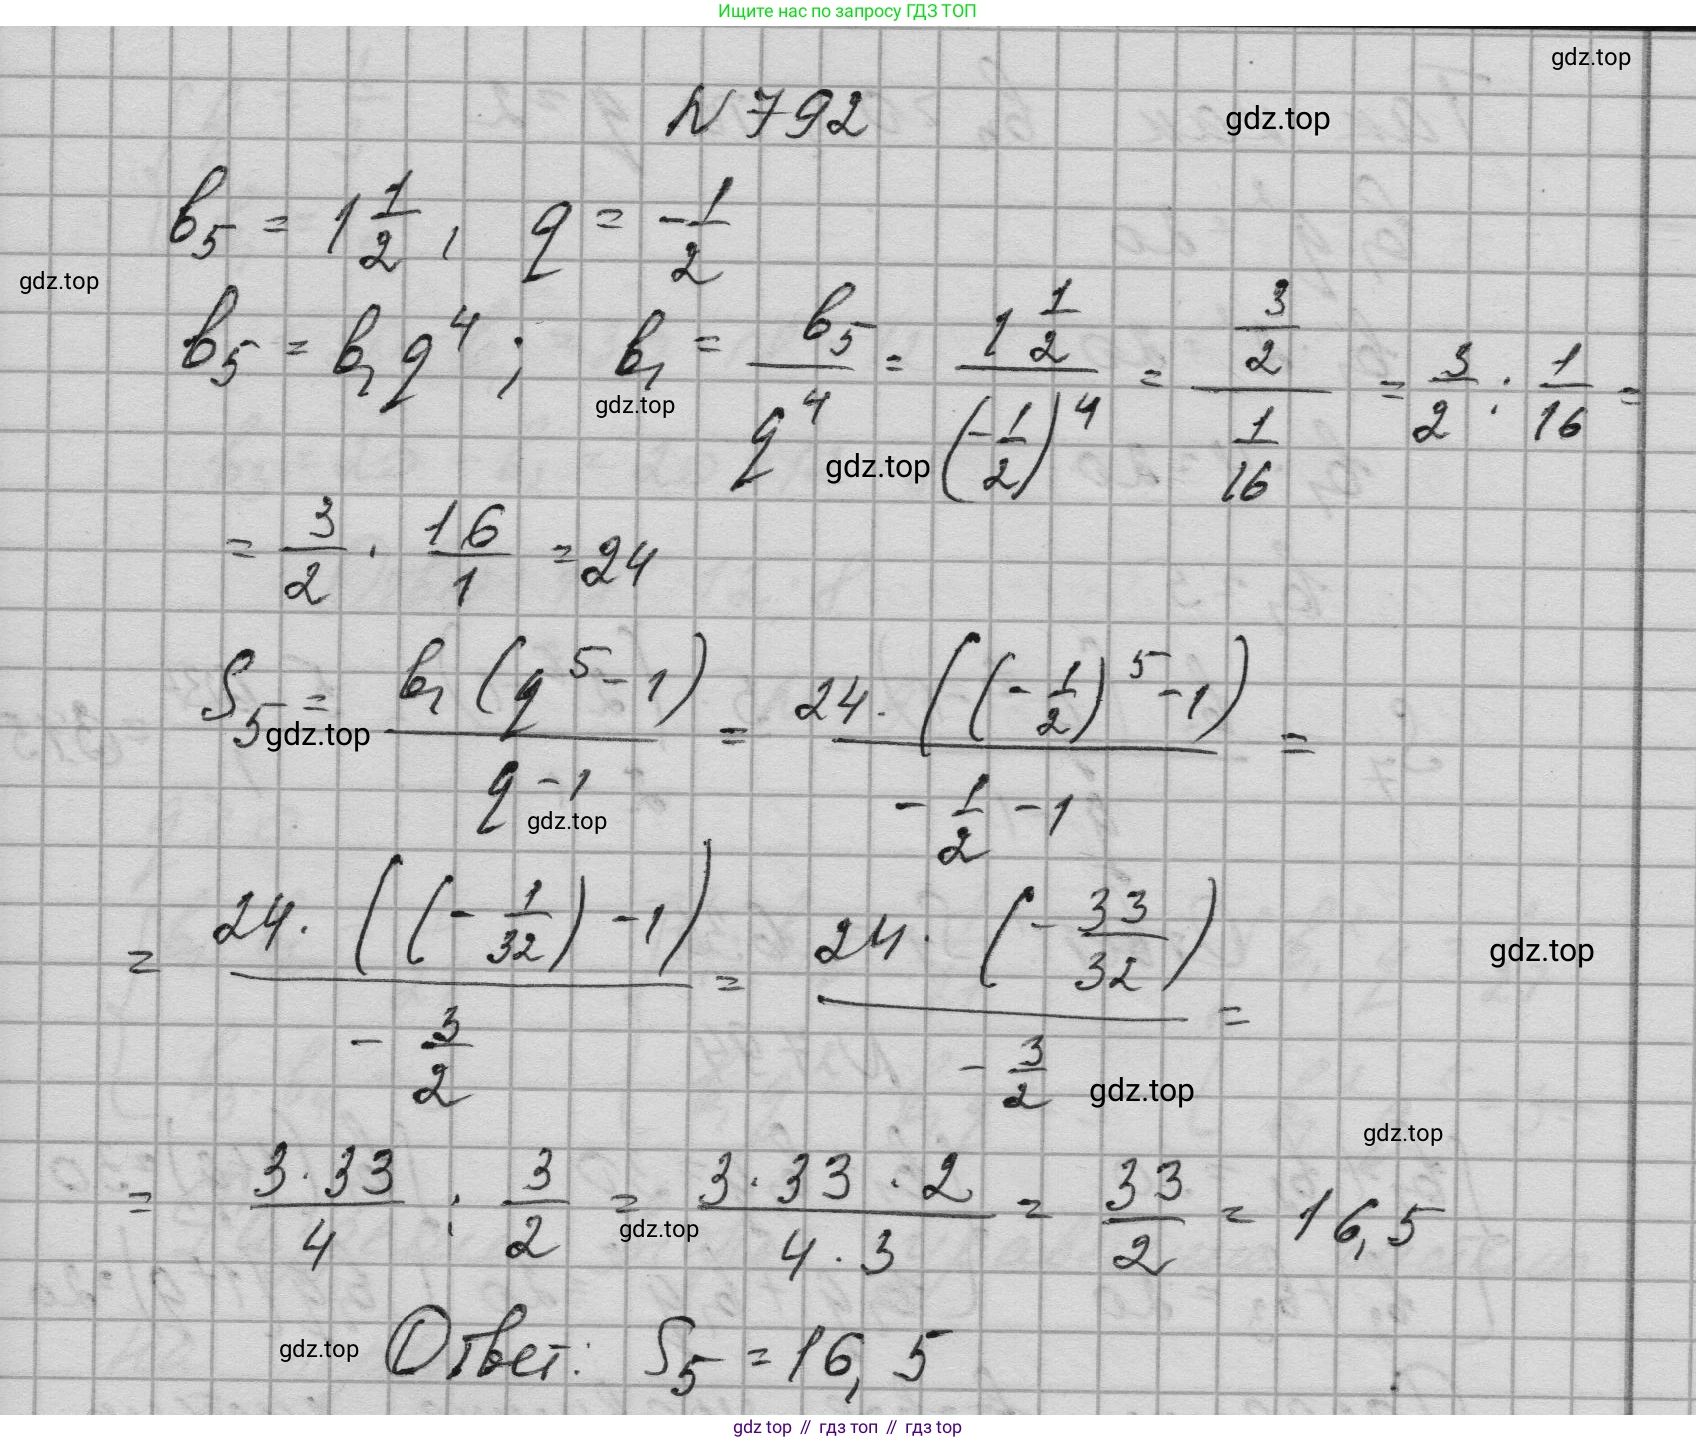 Ищите нас по запросу ГДЗ ТОП
gdz.top
N 792
gdz.top
b₅ = 1 1/2, q = -1/2
gdz.top
b₅ = b₁q⁴; b₁ = b₅/q⁴ = (1 1/2)/(-1/2)⁴ = (3/2)/(1/16) = 3/2 : 1/16 =
gdz.top
gdz.top
= 3/2 · 16/1 = 24
S₅ = b₁(q⁵-1)/(q-1) = 24·((-1/2)⁵-1)/(-1/2-1) =
gdz.top
gdz.top
= 24·((-1/32)-1)/(-3/2) = 24·(-33/32)/(-3/2) =
gdz.top
gdz.top
gdz.top
= 3·33/4 : 3/2 = 3·33·2/4·3 = 33/2 = 16,5
gdz.top
Ответ: S₅ = 16,5
gdz.top
gdz top // гдз топ // гдз top